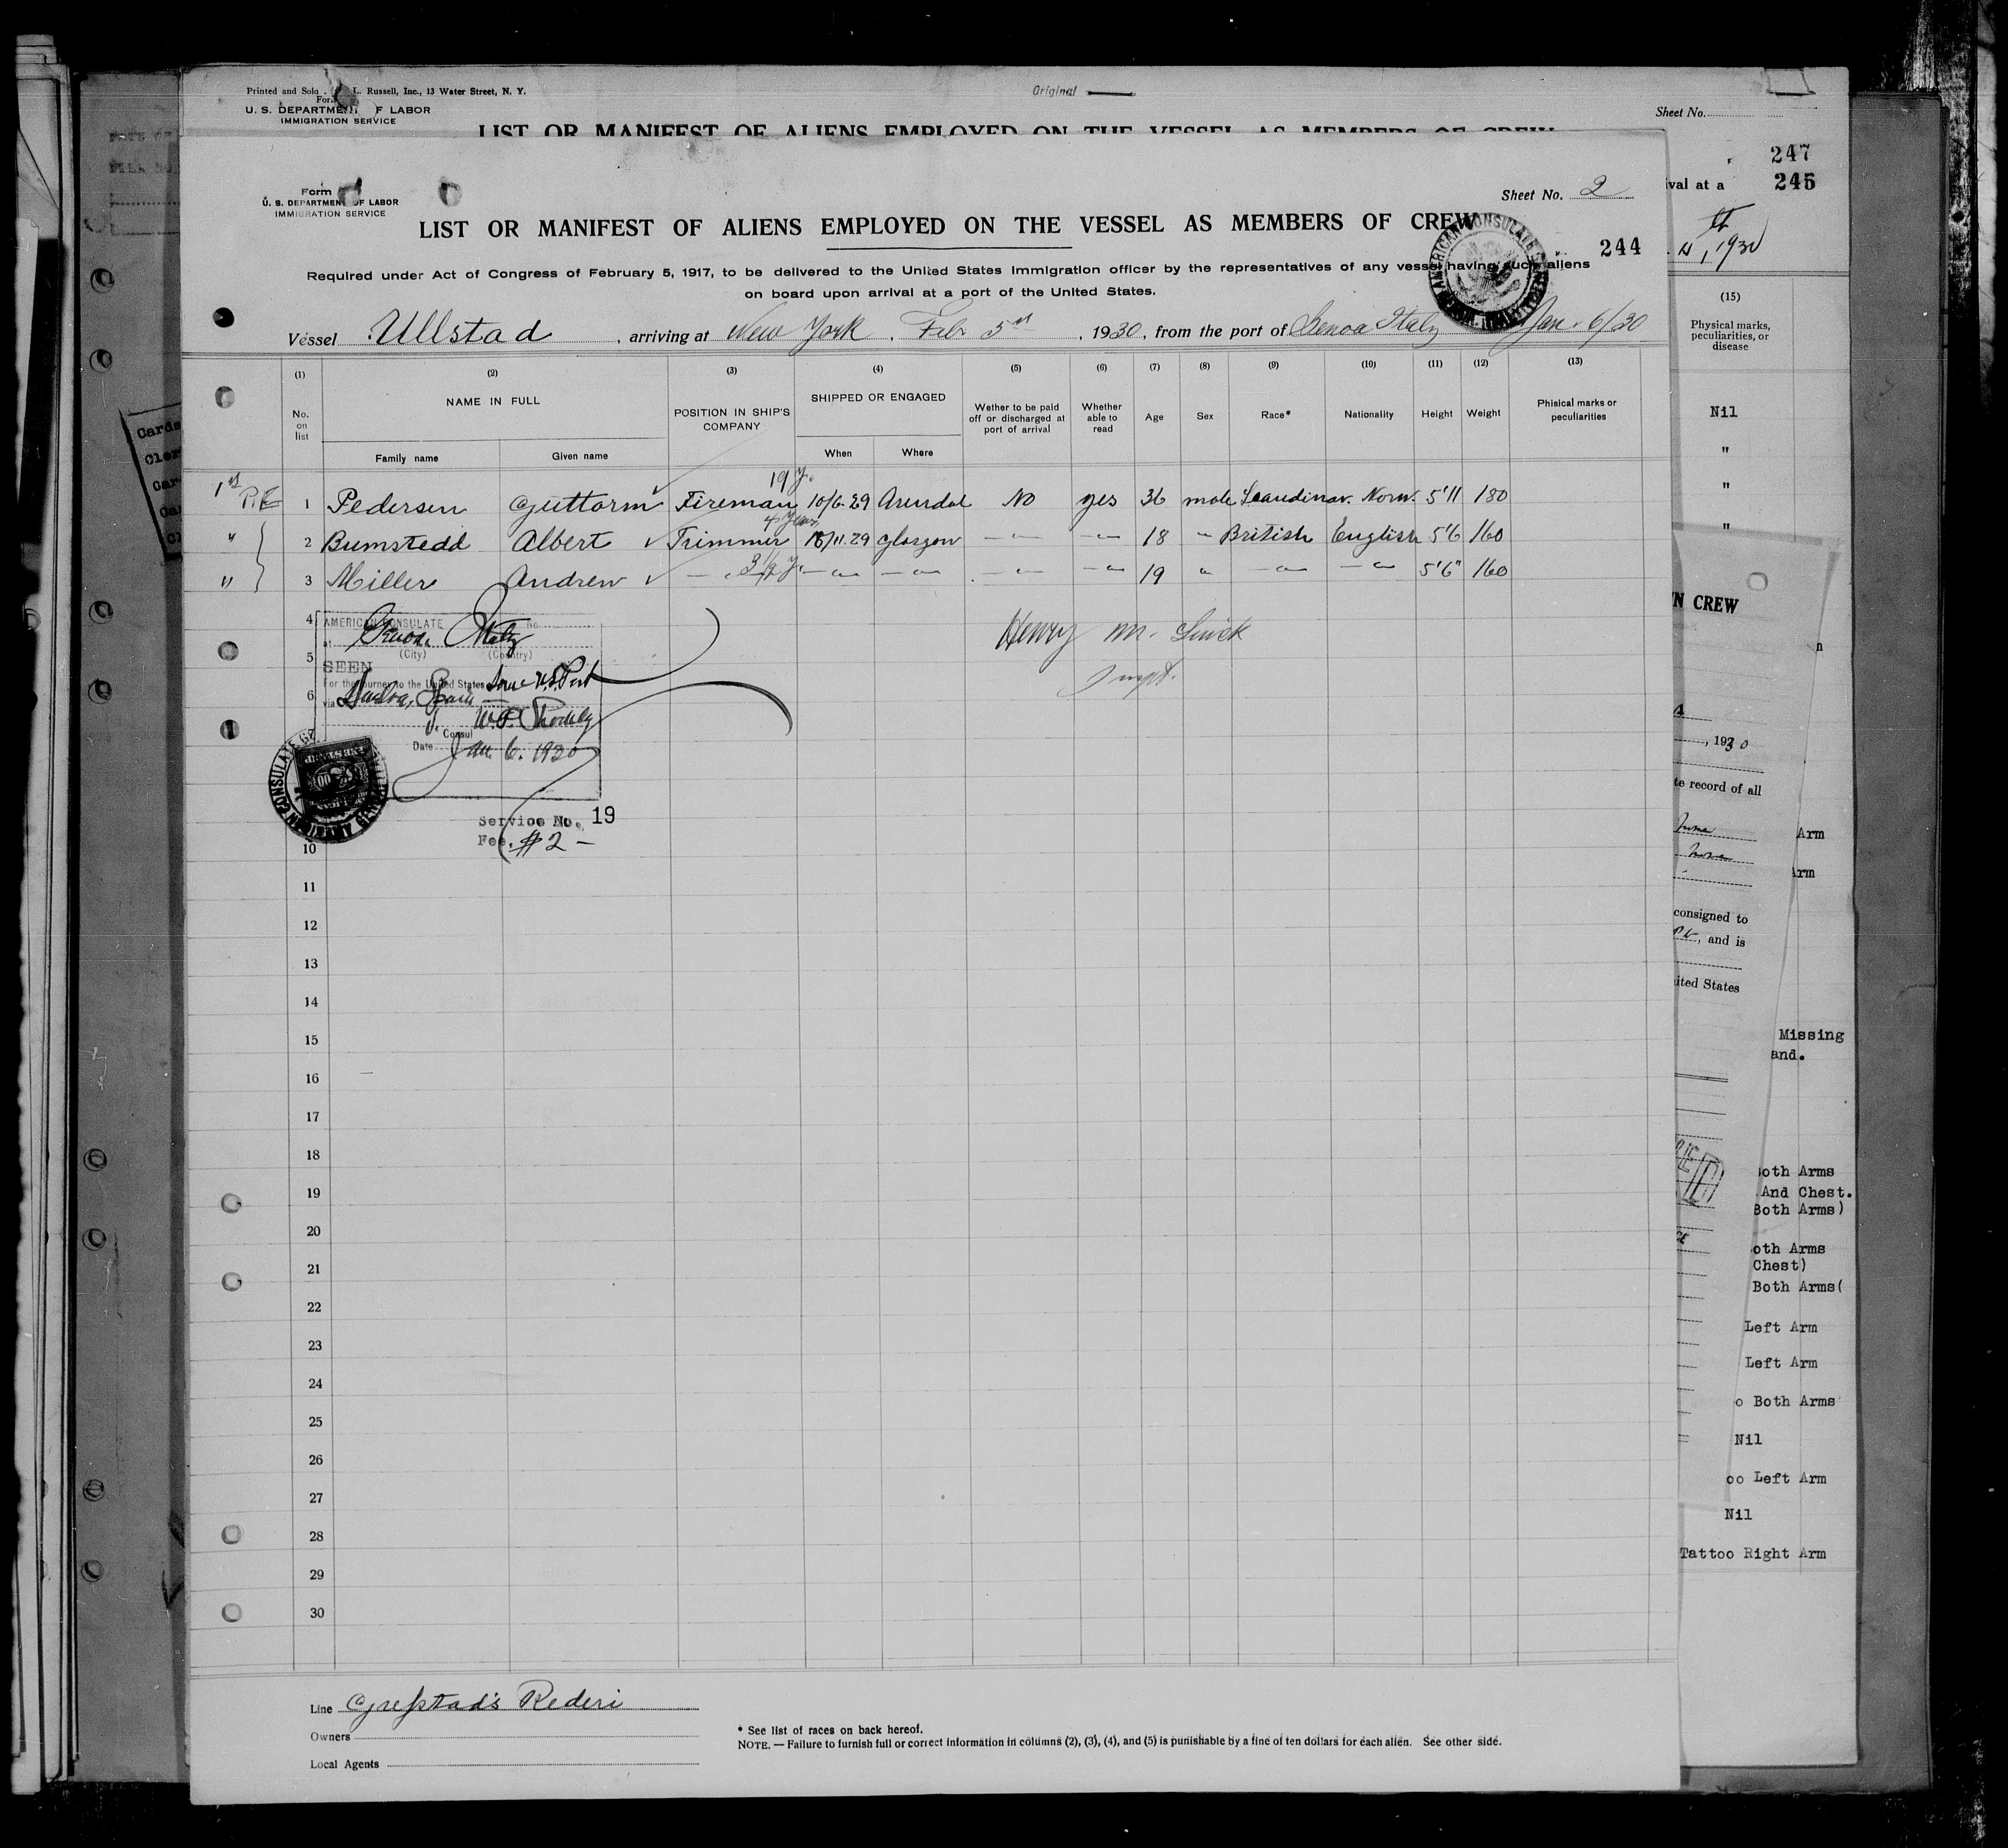 Printed and Sold L. Russell, Inc., 13 Water Street, N. Y.
Original
Form
U. S. DEPARTMENT OF LABOR
IMMIGRATION SERVICE
Sheet No.
LIST OR MANIFEST OF ALIENS EMPLOYED ON THE VESSEL AS MEMBERS OF CREW
247
ival at a 245
, 1930
(15)
Physical marks, peculiarities, or disease
Nil
"
"
"
Form
U. S. DEPARTMENT OF LABOR
IMMIGRATION SERVICE
Sheet No. 2
LIST OR MANIFEST OF ALIENS EMPLOYED ON THE VESSEL AS MEMBERS OF CREW
244
AMERICAN CONSULATE
Required under Act of Congress of February 5, 1917, to be delivered to the United States Immigration officer by the representatives of any vessel having such aliens
on board upon arrival at a port of the United States.
Vessel Ullstad, arriving at New York, Feb 5th, 1930, from the port of Genoa Italy Jan. 6/30
(1) (2) (3) (4) (5) (6) (7) (8) (9) (10) (11) (12) (13)
No. on list
NAME IN FULL
Family name Given name
POSITION IN SHIP'S COMPANY
SHIPPED OR ENGAGED
When Where
Wether to be paid off or discharged at port of arrival
Whether able to read
Age
Sex
Race*
Nationality
Height
Weight
Phisical marks or peculiarities
19 y.
1st P.E 1 Pedersen Guttorm Fireman 10/6-29 Arendal No yes 36 male Scandinav. Norw. 5'11 180
4 years
" 2 Bumstedd Albert Trimmer 18/11.29 Glasgow -"- -"- 18 " British English 5'6 160
3 1/2 y.
" 3 Miller Andrew -"- -"- -"- -"- -"- 19 " -"- -"- 5'6" 160
4
5
6
AMERICAN CONSULATE No.
at Genoa Italy
(City) (Country)
SEEN
For the journey to the United States
via Huelva, Spain
Consul
Date Jan 6. 1930
Service No. 19
Fee. $2 -
Henry M.
10
11
12
13
14
15
16
17
18
19
20
21
22
23
24
25
26
27
28
29
30
Line Grefstad's Rederi
Owners
Local Agents
* See list of races on back hereof.
NOTE. — Failure to furnish full or correct information in columns (2), (3), (4), and (5) is punishable by a fine of ten dollars for each alien. See other side.
N CREW
, 1930
te record of all
Arm
Arm
consigned to
, and is
ited States
Missing
and.
oth Arms
And Chest.
Both Arms)
oth Arms
Chest)
Both Arms(
Left Arm
Left Arm
o Both Arms
Nil
oo Left Arm
Nil
Tattoo Right Arm